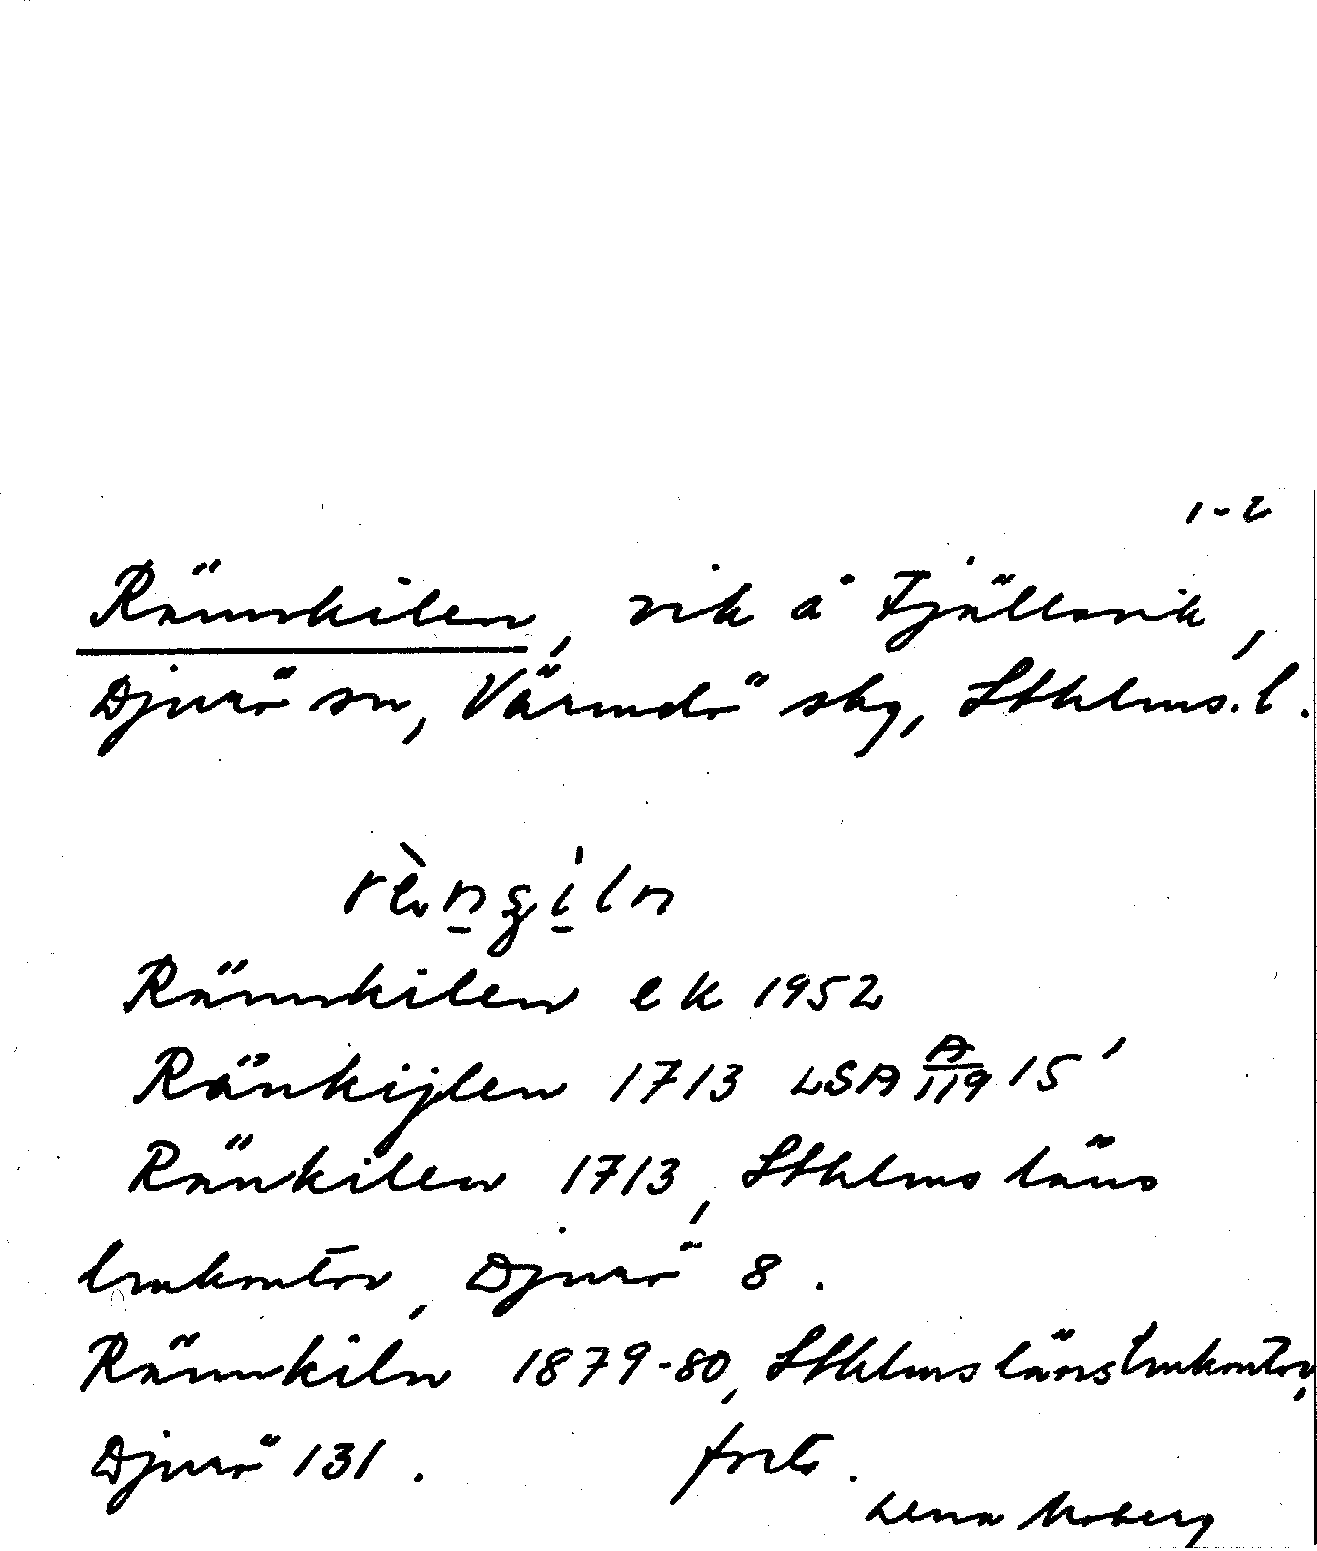 1-2
Rännkilen, vik å Fjällsvik,
Djurö sn, Värmdö skg, Sthlms. l.
rènȿiln
Rännkilen ek 1952
Ränkijlen 1713 LSA A/119 15'
Ränkilen 1713, Sthlms läns
lmkontor, Djurö 8.
Rännkiln 1879-80, Sthlms läns lmkontor,
Djurö 131. forts.
Lena Moberg